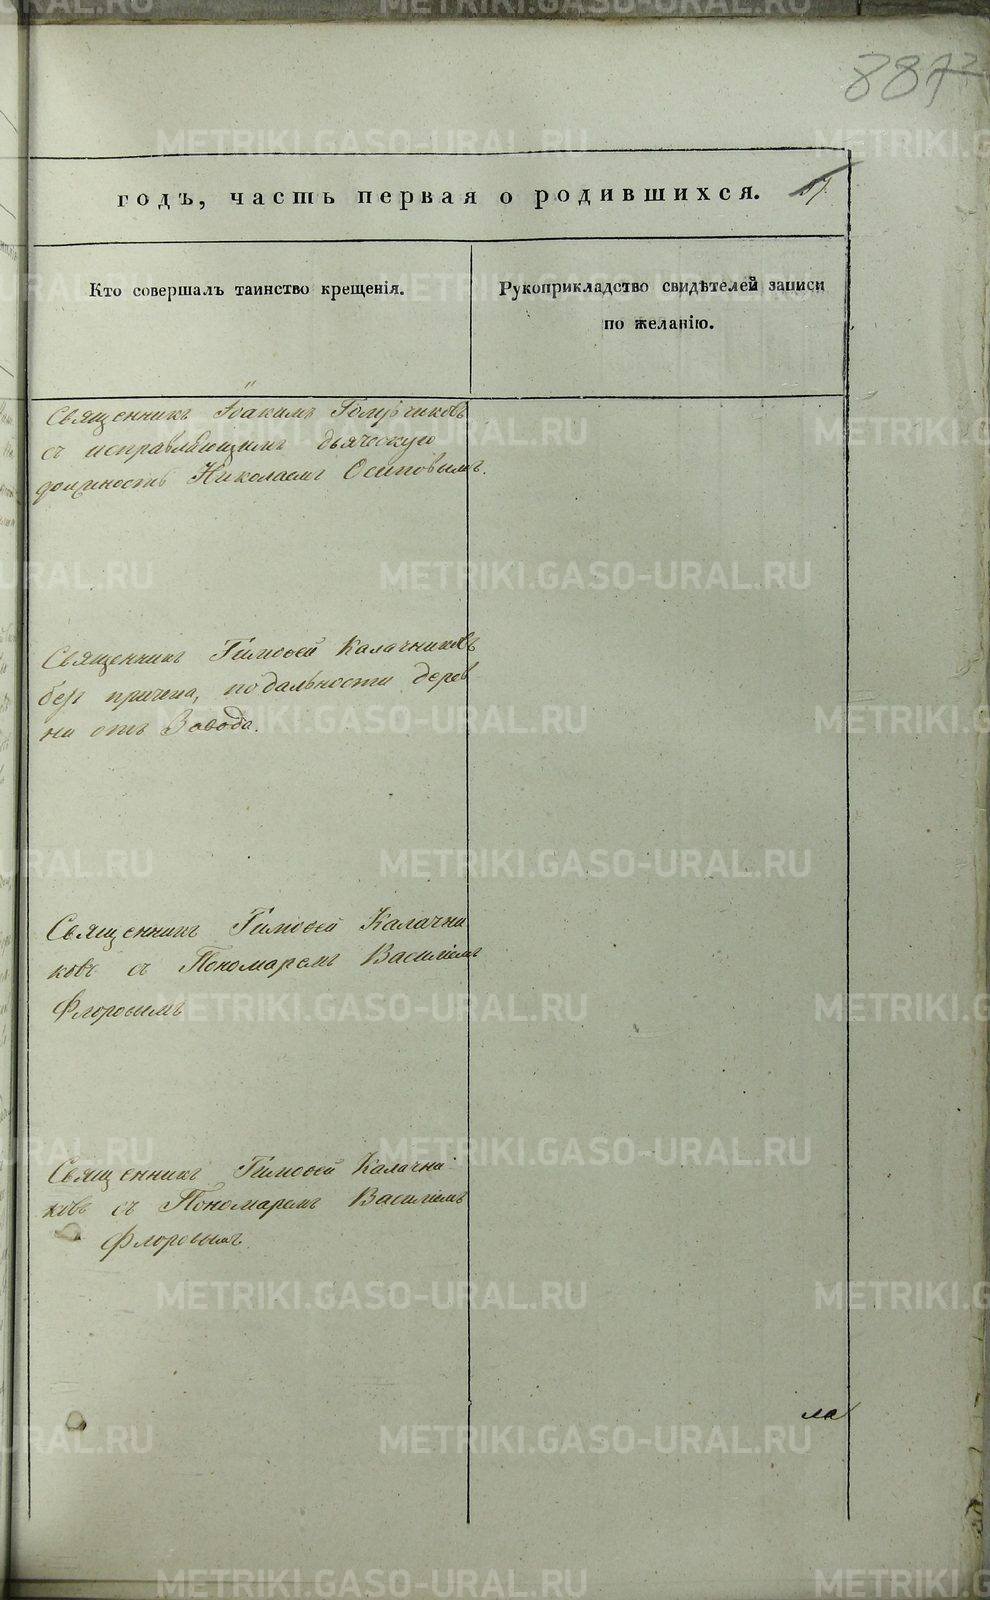 887
годъ, часть первая о родившихся. 57.
Кто совершалъ таинство крещенія.
Рукоприкладство свидѣтелей записи
по желанію.
Священникъ Іоакимъ Голубчиковъ
съ исправляющимъ дьяческую
должность Николаемъ Осиповымъ.
Священникъ Тимоѳей Калачниковъ
безъ причта, по дальности дерев
ни отъ Завода.
Священникъ Тимоѳей Калачни
ковъ съ Пономаремъ Василіемъ
Флоровымъ
Священникъ Тимоѳей Калачни
ковъ съ Пономаремъ Василіемъ
Флоровымъ.
ла
METRIKI.GASO-URAL.RU